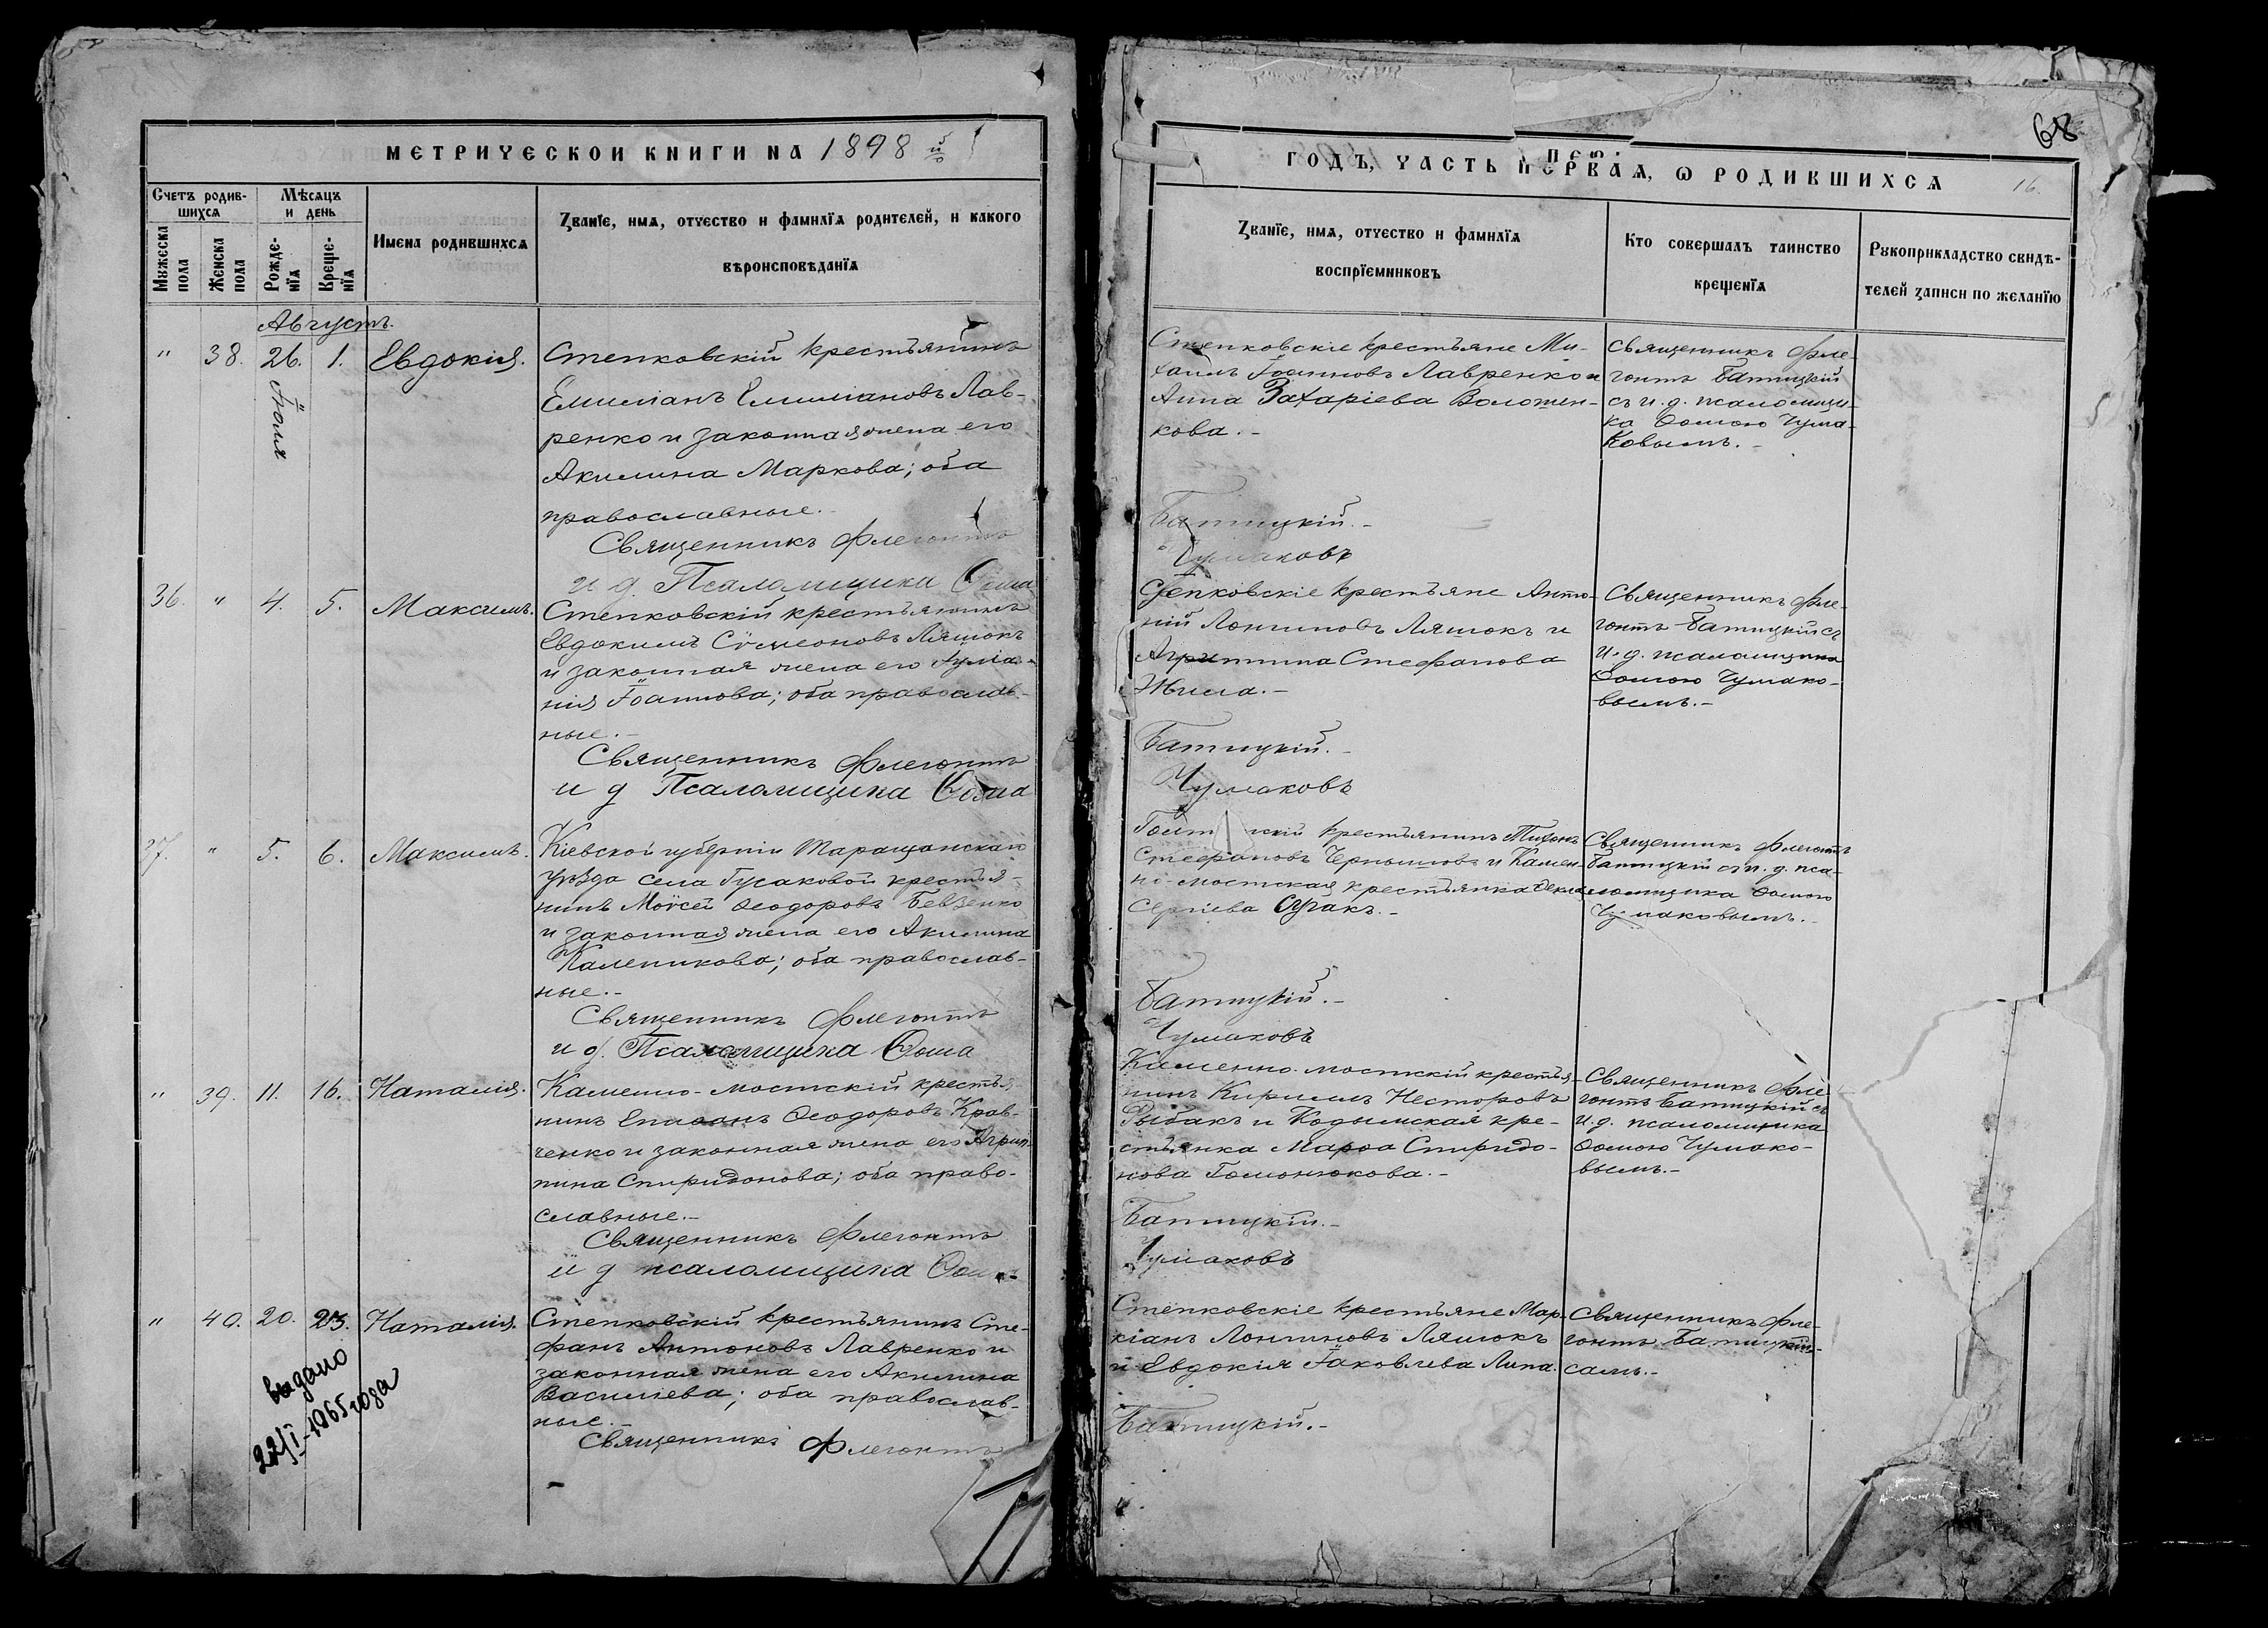 МЕТРИЧЕСКОЙ КНИГИ НА 1898 й
Счетъ родив-
шихся
Мѣсяцъ
и день
Имена родившихся
Званіе, имя, отчество и фамилія родителей, и какого
вѣроисповѣданія
Мужеска
пола
Женска
пола
Рожде-
нія
Креще-
нія
Августъ.
" 38. 26. 1. Евдокія.
Іюля
Степковскій крестьянинъ
Емиліанъ Емиліановъ Лав-
ренко и законная жена его
Акилина Маркова; оба
православные.-
Священникъ Флегонтъ
и д. Псаломщика Ѳома
36. " 4. 5. Максимъ.
Степковскій крестьянинъ
Евдокимъ Сѵмеоновъ Ляшокъ
и законная жена его Іуліа-
нія Іоаннова; оба православ-
ные.-
Священникъ Флегонтъ
и д Псаломщика Ѳома
37. " 5. 6. Максимъ.
Кіевской губерніи Таращанскаго
уѣзда села Гусаковой крестья-
нинъ Моѵсей Ѳеодоровъ Бевзенко
и законная жена его Акилина
Каленикова; оба православ-
ные.-
Священникъ Флегонтъ
и д. Псаломщика Ѳома
" 39. 11. 16. Наталія.
Каменно-мостскій крестья-
нинъ Епифанъ Ѳеодоровъ Крав-
ченко и законная жена его Агрип-
пина Спиридонова; оба право-
славные.-
Священникъ Флегонтъ
и д псаломщика Ѳома
" 40. 20. 23. Наталія.
Степковскій крестьянинъ Сте-
фанъ Антоновъ Лавренко и
законная жена его Акилина
Василіева; оба православ-
ные.-
Священникъ Флегонтъ
выдано
22/I-1965 года
68
ГОДЪ, ЧАСТЬ ПЕРВАЯ, Ѡ РОДИВШИХСЯ
16.
Званіе, имя, отчество и фамилія
воспріемниковъ
Кто совершалъ таинство
крещенія
Рукоприкладство свидѣ-
телей записи по желанію
Степковскіе крестьяне Ми-
хаилъ Іоанновъ Лавренко и
Анна Захаріева Воложен-
кова.-
Священникъ Фле-
гонтъ Батицкій
съ и. д. псаломщи-
ка Ѳомою Чума-
ковымъ.-
Батицкій.-
Чумаковъ
Степковскіе крестьяне Анто-
ній Лонгиновъ Ляшокъ и
Агриппина Стефанова
Жила.-
Священникъ Фле-
гонтъ Батицкій съ
и. д. псаломщика
Ѳомою Чумако-
вымъ.-
Батицкій.-
Чумаковъ
крестьянинъ Тихонъ
Стефановъ Чернышовъ и Камен-
но-мостская крестьянка Ѳекла
Сергіева Сугакъ.-
Священникъ Флегонтъ
Батицкій съ и. д. пса-
ломщика Ѳомою
Чумаковымъ.-
Батицкій.-
Чумаковъ
Каменно-мостскій крестья-
нинъ Кириллъ Несторовъ
Рыбакъ и Кодымская кре-
стьянка Марѳа Спиридо-
нова Гомонюкова.-
Священникъ Фле-
гонтъ Батицкій съ
и. д. псаломщика
Ѳомою Чумако-
вымъ.-
Батицкій.-
Чумаковъ
Степковскіе крестьяне Мар-
кіанъ Лонгиновъ Ляшокъ
и Евдокія Іаковлева Липа.
Священникъ Фле-
гонтъ Батицкій
самъ.-
Батицкій.-